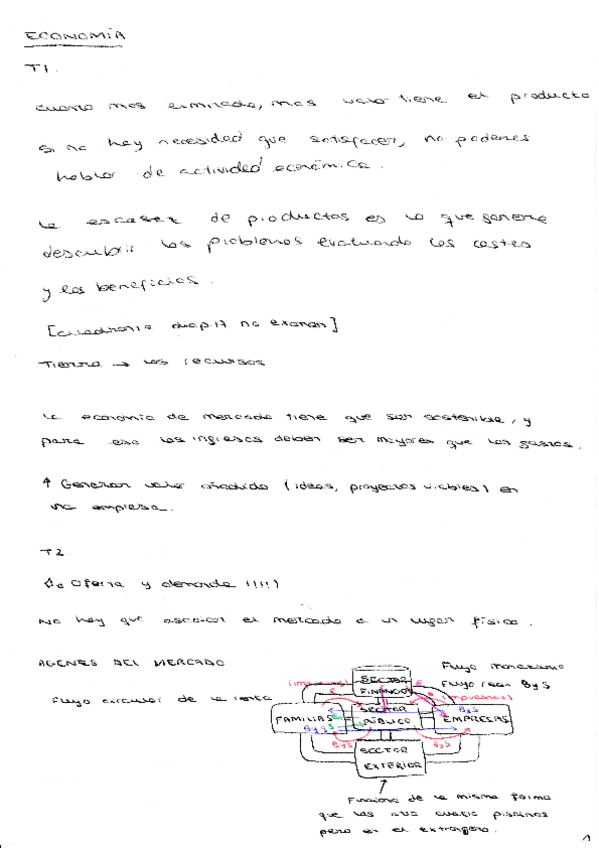 ECONOMÍA
T1.
cuanto más eliminado, más valor tiene el producto
si no hay necesidad que satisfacer, no podemos
hablar de actividad económica.
la escasez de productos es lo que genera
descubrir los problemas evaluando los costes
y los beneficios.
[cuadronia diap.17 no examen]
Tierra → los recursos
la economía de mercado tiene que ser sostenible, y
para eso los ingresos deben ser mayores que los gastos.
↑ Generar valor añadido (ideas, proyectos viables) en
una empresa.
T2
Oferta y demanda !!!!)
No hay que asociar el mercado a un lugar físico.
AGENES DEL MERCADO
Flujo circular de la renta
Flujo monetario
Flujo real ByS
(impuestos)
€
SECTOR
FINANCIERO
€
(impuestos)
FAMILIAS
SECTOR
PÚBLICO
ByS
EMPRESAS
ByS
ByS
ByS
SECTOR
EXTERIOR
Funciona de la misma forma
que las otras cuatro piscinas
pero en el extranjero.
1